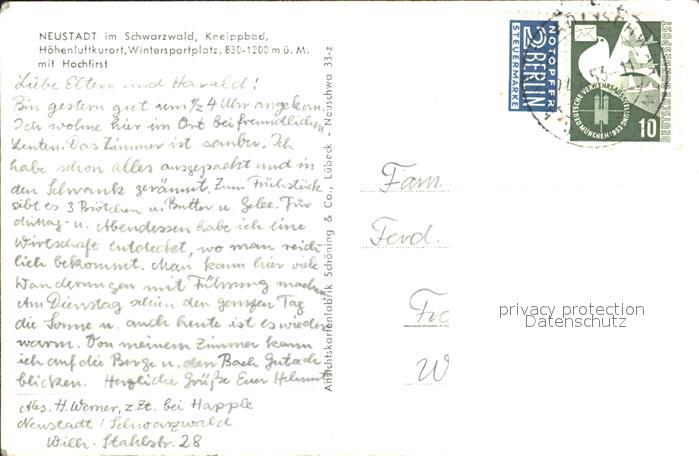 NEUSTADT im Schwarzwald, Kneippbad,
Höhenluftkurort, Wintersportplatz, 830-1200 m ü. M.
mit Hochfirst
Liebe Eltern und Harald!
Bin gestern gut um ½ 4 Uhr angekom.
Ich wohne hier im Ort bei freundlichen
Leuten. Das Zimmer ist sauber. Ich
habe schon alles ausgepackt und in
den Schrank geräumt. Zum Frühstück
gibt es 3 Brötchen u. Butter u. Gelee. Für
Mittag- u. Abendessen habe ich eine
Wirtschaft entdeckt, wo man reich-
lich bekommt. Man kann hier viele
Wanderungen mit Führung machen
Am Dienstag schien den ganzen Tag
die Sonne u. auch heute ist es wieder
warm. Von meinem Zimmer kann
ich auf die Berge u. den Bach Gutach
blicken. Herzliche Grüße Euer Helmut
Abs. H. Werner, z. Zt. bei Happle
Neustadt / Schwarzwald
Wilh. Stahlstr. 28
Ansichtskartenfabrik Schöning & Co., Lübeck - Neuschwa 33-z
NOTOPFER
2 BERLIN
STEUERMARKE
DEUTSCHE BUNDESPOST
DEUTSCHE VERKEHRSAUSSTELLUNG
MÜNCHEN 1953
10
53-11
Fam.
Ferd.
W
privacy protection
Datenschutz